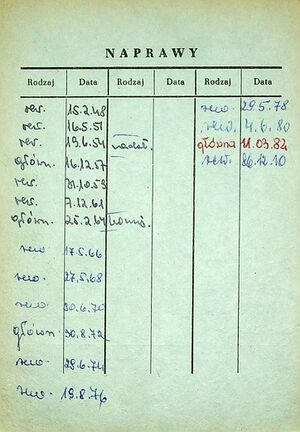 NAPRAWY
Rodzaj Data Rodzaj Data Rodzaj Data
rew. 15.2.48 rew. 29.5.78
rew. 16.5.51 rew. 4.6.80
rew. 19.6.54 główna 11.03.82
główn. 16.12.57 rew. 86.12.10
rew. 21.10.59
rew. 7.12.61
główn. 25.2.64
rew. 17.5.66
rew. 27.5.68
rew. 30.6.70
główn. 30.8.72
rew. 29.6.74
rew. 19.8.76